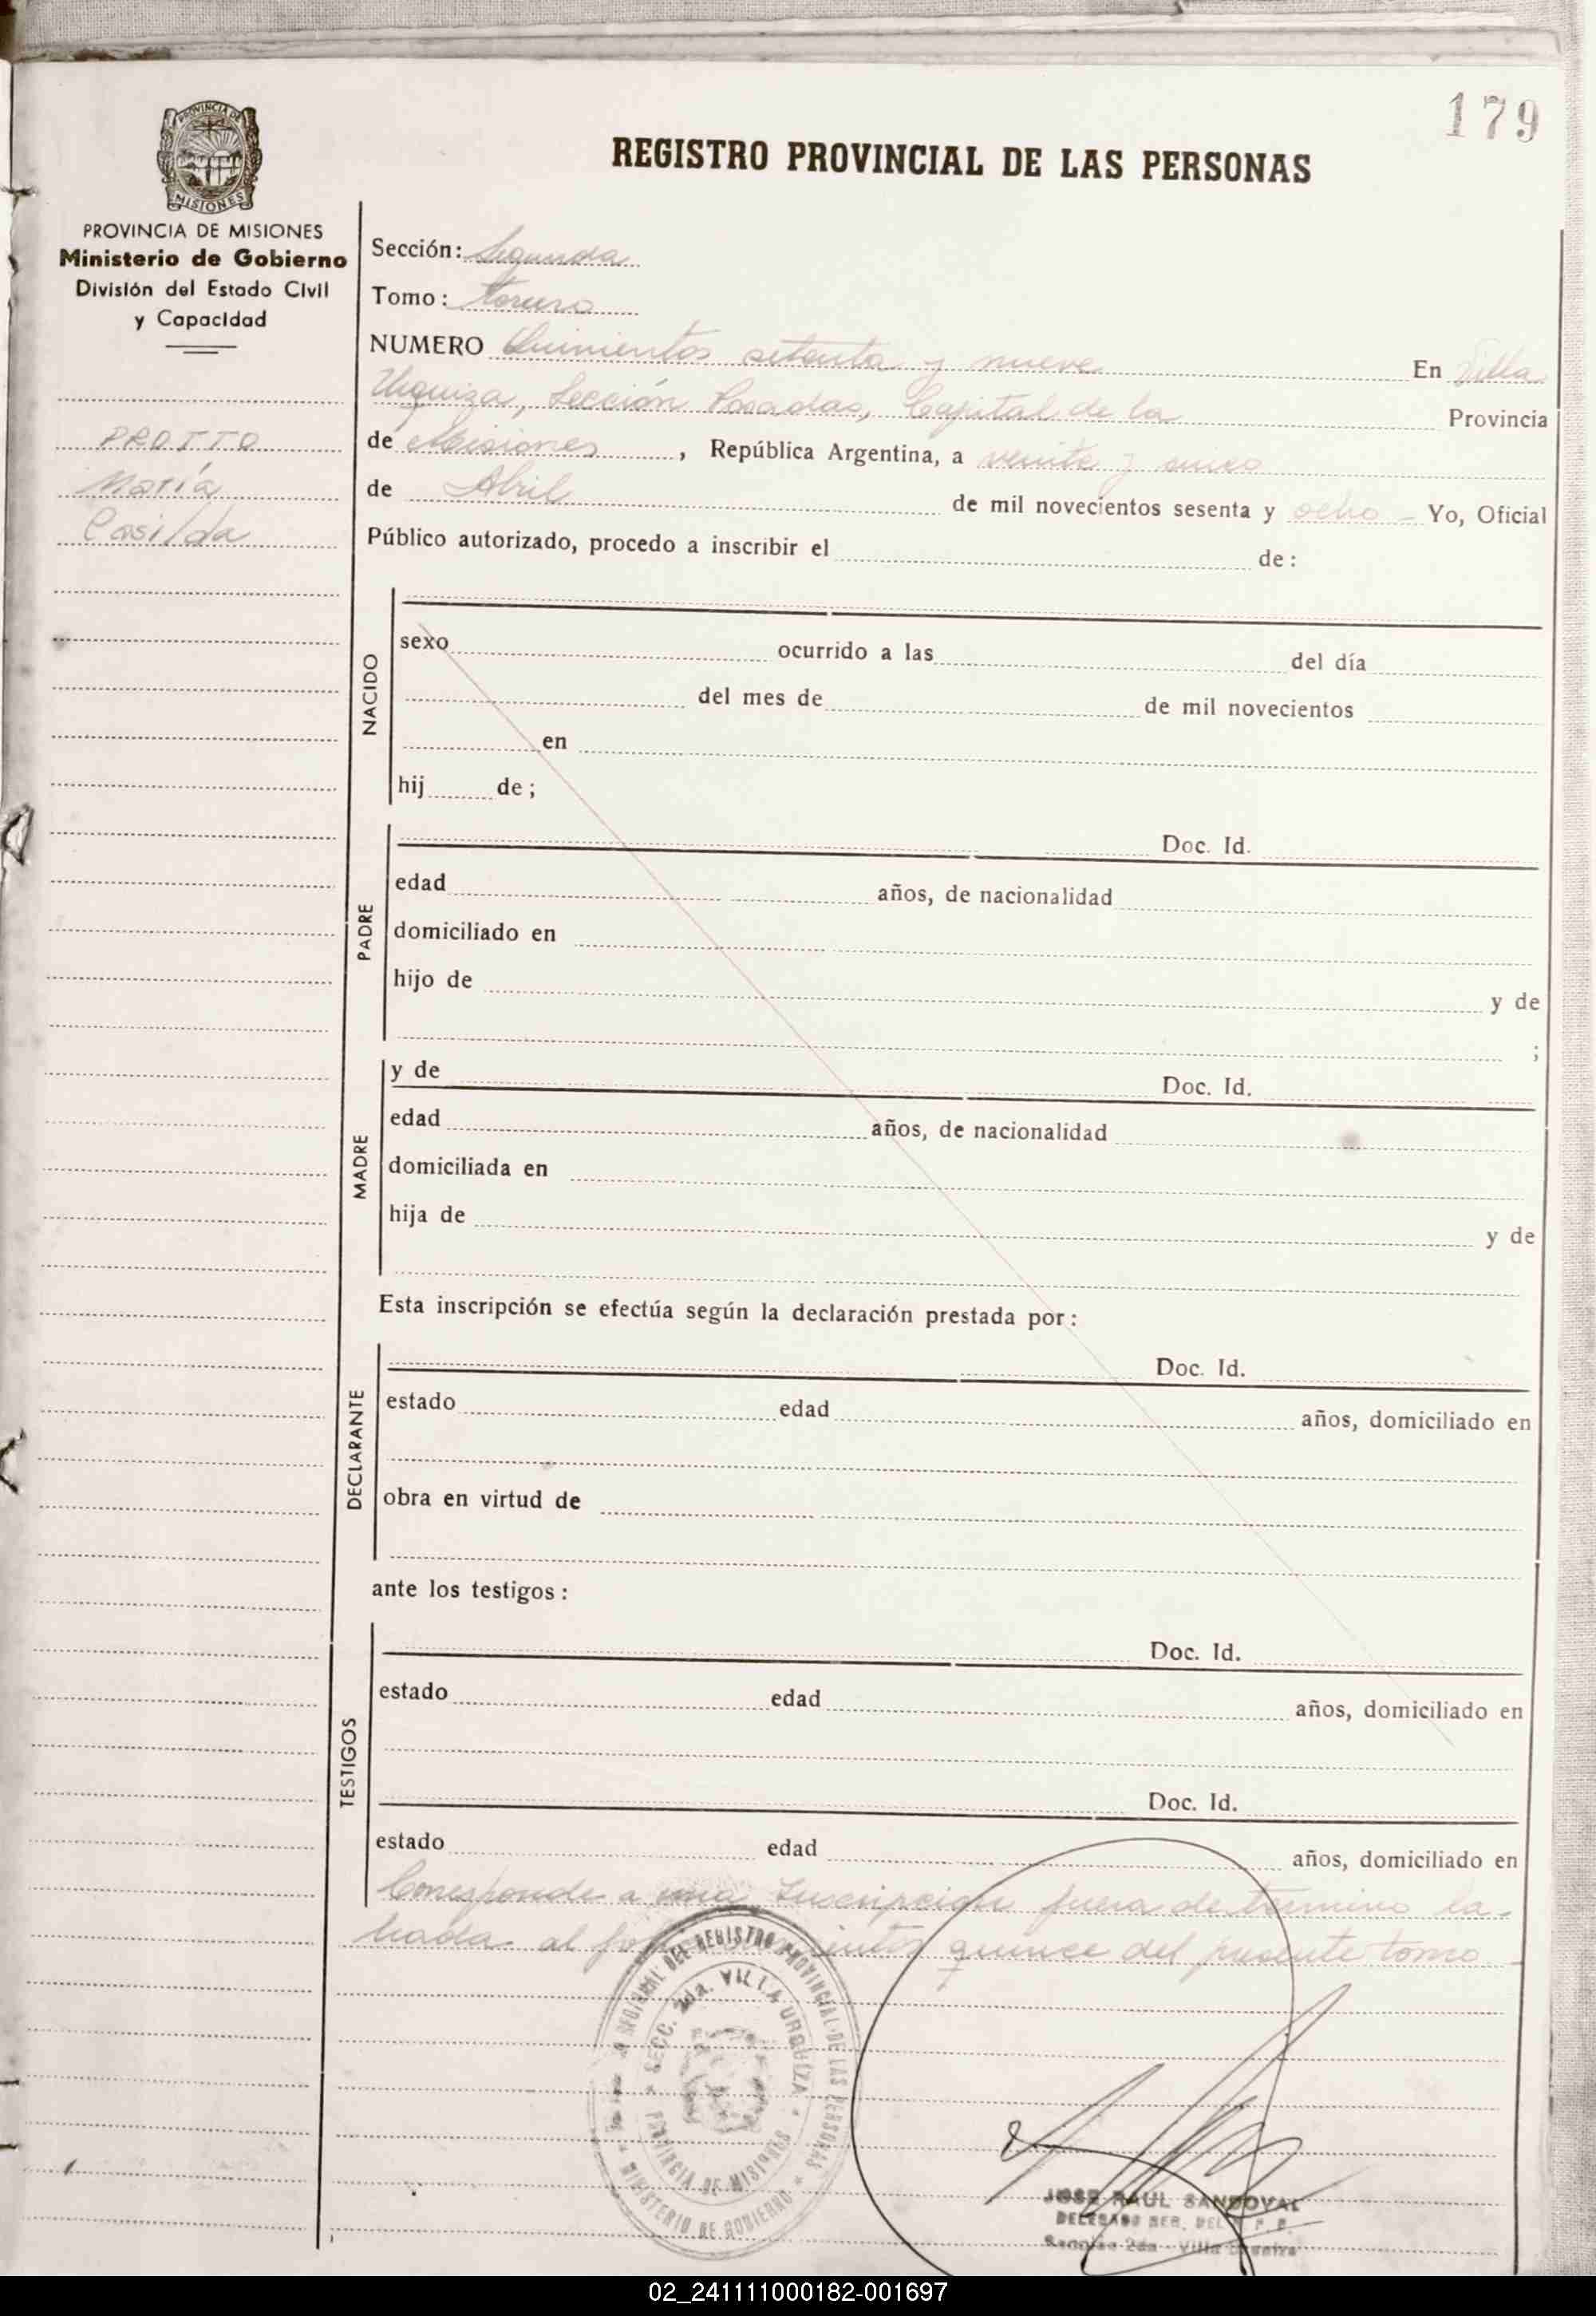 179
PROVINCIA DE MISIONES
REGISTRO PROVINCIAL DE LAS PERSONAS
PROVINCIA DE MISIONES
Ministerio de Gobierno
División del Estado Civil
y Capacidad
PROTTO
María
Casilda
Sección: Segunda
Tomo: tercero
NUMERO Quinientos setenta y nueve En Villa
Urquiza, Sección Posadas, Capital de la Provincia
de Misiones, República Argentina, a veinte y cinco
de Abril de mil novecientos sesenta y ocho - Yo, Oficial
Público autorizado, procedo a inscribir el de:
NACIDO
sexo ocurrido a las del día
del mes de de mil novecientos
en
hij de;
PADRE
Doc. Id.
edad años, de nacionalidad
domiciliado en
hijo de y de
;
MADRE
y de Doc. Id.
edad años, de nacionalidad
domiciliada en
hija de y de
Esta inscripción se efectúa según la declaración prestada por:
DECLARANTE
Doc. Id.
estado edad años, domiciliado en
obra en virtud de
ante los testigos:
TESTIGOS
Doc. Id.
estado edad años, domiciliado en
Doc. Id.
estado edad años, domiciliado en
Corresponde a una Inscripcion fuera de termino la-
brada al quince del presente tomo
DEL REGISTRO PROVINCIAL DE LAS PERSONAS
SECC. 2da. VILLA URQUIZA
PROVINCIA DE MISIONES
MINISTERIO DE GOBIERNO
JOSE RAUL SANDOVAL
DELEGADO SER. DEL R. P. P.
Sección 2da - Villa Urquiza
02_241111000182-001697